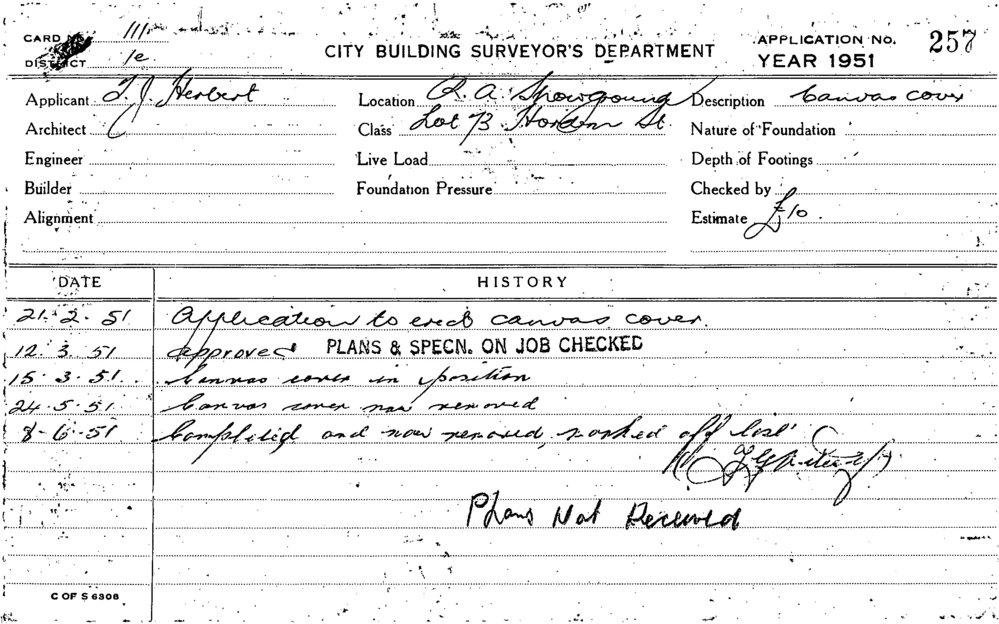 CARD No. 111
DISTRICT 1e
CITY BUILDING SURVEYOR'S DEPARTMENT
APPLICATION No. 257
YEAR 1951
Applicant T. J. Herbert
Location R. A. Showground
Description Canvas cover
Architect
Class Lot 73 Hordern St.
Nature of Foundation
Engineer
Live Load
Depth of Footings
Builder
Foundation Pressure
Checked by
Alignment
Estimate £10.
DATE HISTORY
21. 2. 51 Application to erect canvas cover.
12. 3. 51 approved PLANS & SPECN. ON JOB CHECKED
15. 3. 51. Canvas cover in position
24. 5. 51 Canvas cover now removed
8-6-51 Completed and now removed, marked off list
Plans Not Received
C OF S 6308